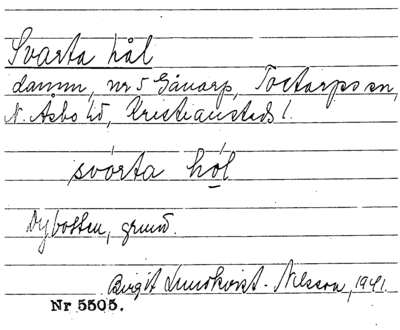 Svarta hål
damm, nr 5 Gånarp, Tostarps sn,
N. Åsbo hd, Kristianstads l.
svórta hó̱l
Dybotten, grund.
Birgit Lundkvist-Nilsson, 1941.
Nr 5505.